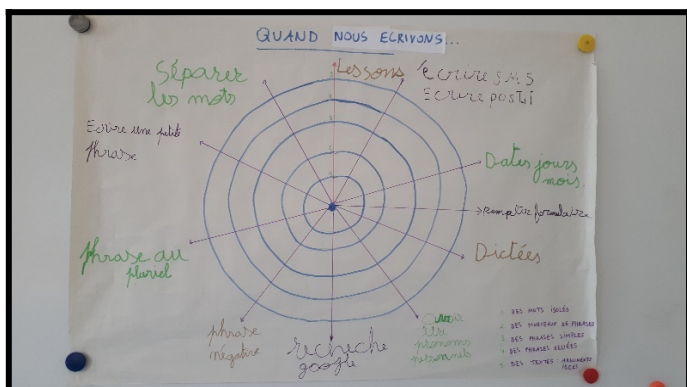 QUAND NOUS ECRIVONS...
Séparer
les mots
Lessons
écrire SMS
Ecrire posti
Ecrire une petite
phrase
Dates jours
mois
remplir formulaire
phrase au
pluriel
Dictées
phrase
négative
recheche
google
pronoms
personnels
1. DES MOTS ISOLÉS
2. DES MORCEAUX DE PHRASES
3. DES PHRASES SIMPLES
4. DES PHRASES RELIÉES
5. DES TEXTES: ARGUMENTS
IDÉES